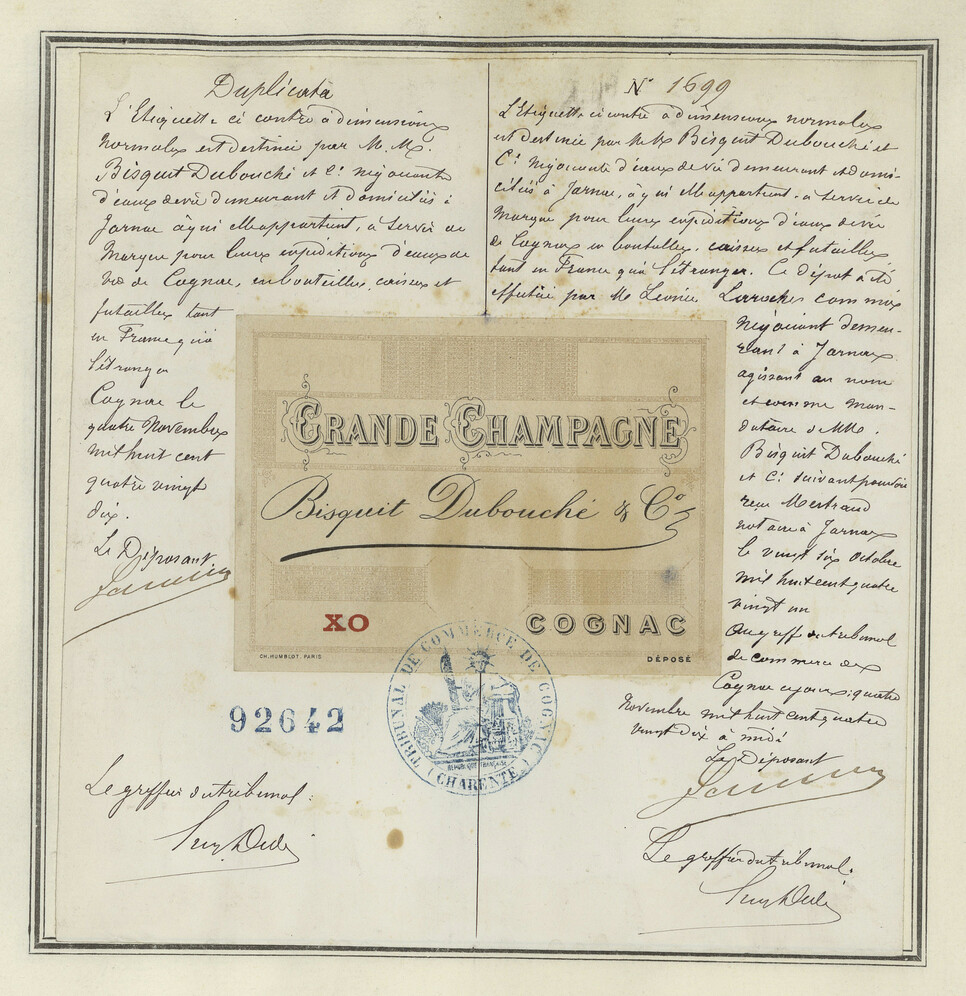 Duplicata
L'Etiquette ci contre à dimensions
normales est destinée par M.M.
Bisquit Dubouché et Cie négociants
d'eaux de vie demeurant et domiciliés à
Jarnac à qui elle appartient, à servir de
Marque pour leurs expéditions d'eaux de
vie de Cognac, en bouteilles, caisses et
futailles tant
en France qu'à
l'étranger
Cognac le
quatre Novembre
mil huit cent
quatre vingt
dix.
Le Déposant
Le greffier du tribunal:
No 1699
L'Etiquette ci contre à dimensions normales
est destinée par M.M. Bisquit Dubouché et
Cie Négociants d'eaux de vie demeurant et domi-
ciliés à Jarnac, à qui elle appartient, à servir de
Marque pour leurs expéditions d'eaux de vie
de Cognac en bouteilles, caisses et futailles,
tant en France qu'à l'étranger. Ce dépôt a été
effectué par Mr Léonce Laroche commis
négociant demeu-
rant à Jarnac
agissant au nom
et comme man-
dataire de MM.
Bisquit Dubouché
et Cie suivant pouvoir
reçu
notaire à Jarnac
le vingt six octobre
mil huit cent quatre
vingt un
Au greffe du tribunal
de commerce de
Cognac ce jour quatre
Novembre mil huit cent quatre
vingt dix à midi
Le Déposant
Le greffier du tribunal:
GRANDE CHAMPAGNE
Bisquit Dubouché & Co
XO
COGNAC
CH. HUMBLOT, PARIS
DÉPOSÉ
92642
TRIBUNAL DE COMMERCE DE COGNAC
RÉPUBLIQUE FRANÇAISE
(CHARENTE)